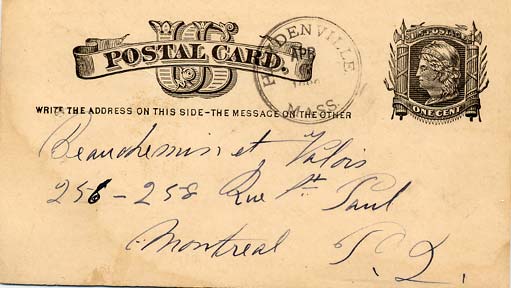 US
POSTAL CARD.
U.S. POSTAGE
ONE CENT
APR
MASS.
WRITE THE ADDRESS ON THIS SIDE–THE MESSAGE ON THE OTHER
Beauchemin et Valois
256–258 Rue St Paul
Montreal P. Q.